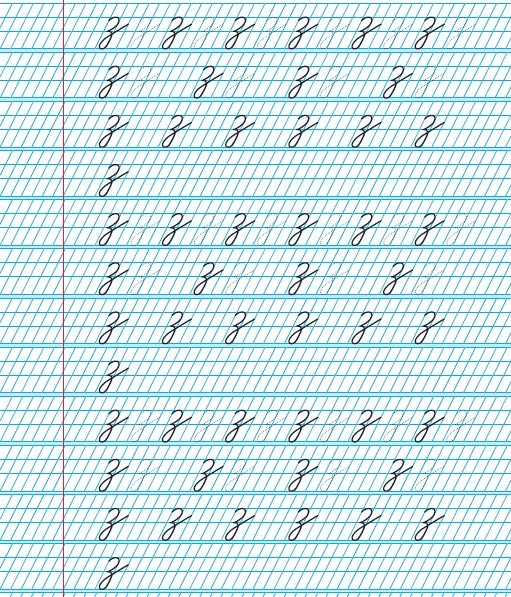 з з з з з з
з з з з
з з з з з з
з
з з з з з з
з з з з
з з з з з з
з
з з з з з з
з з з з
з з з з з з
з